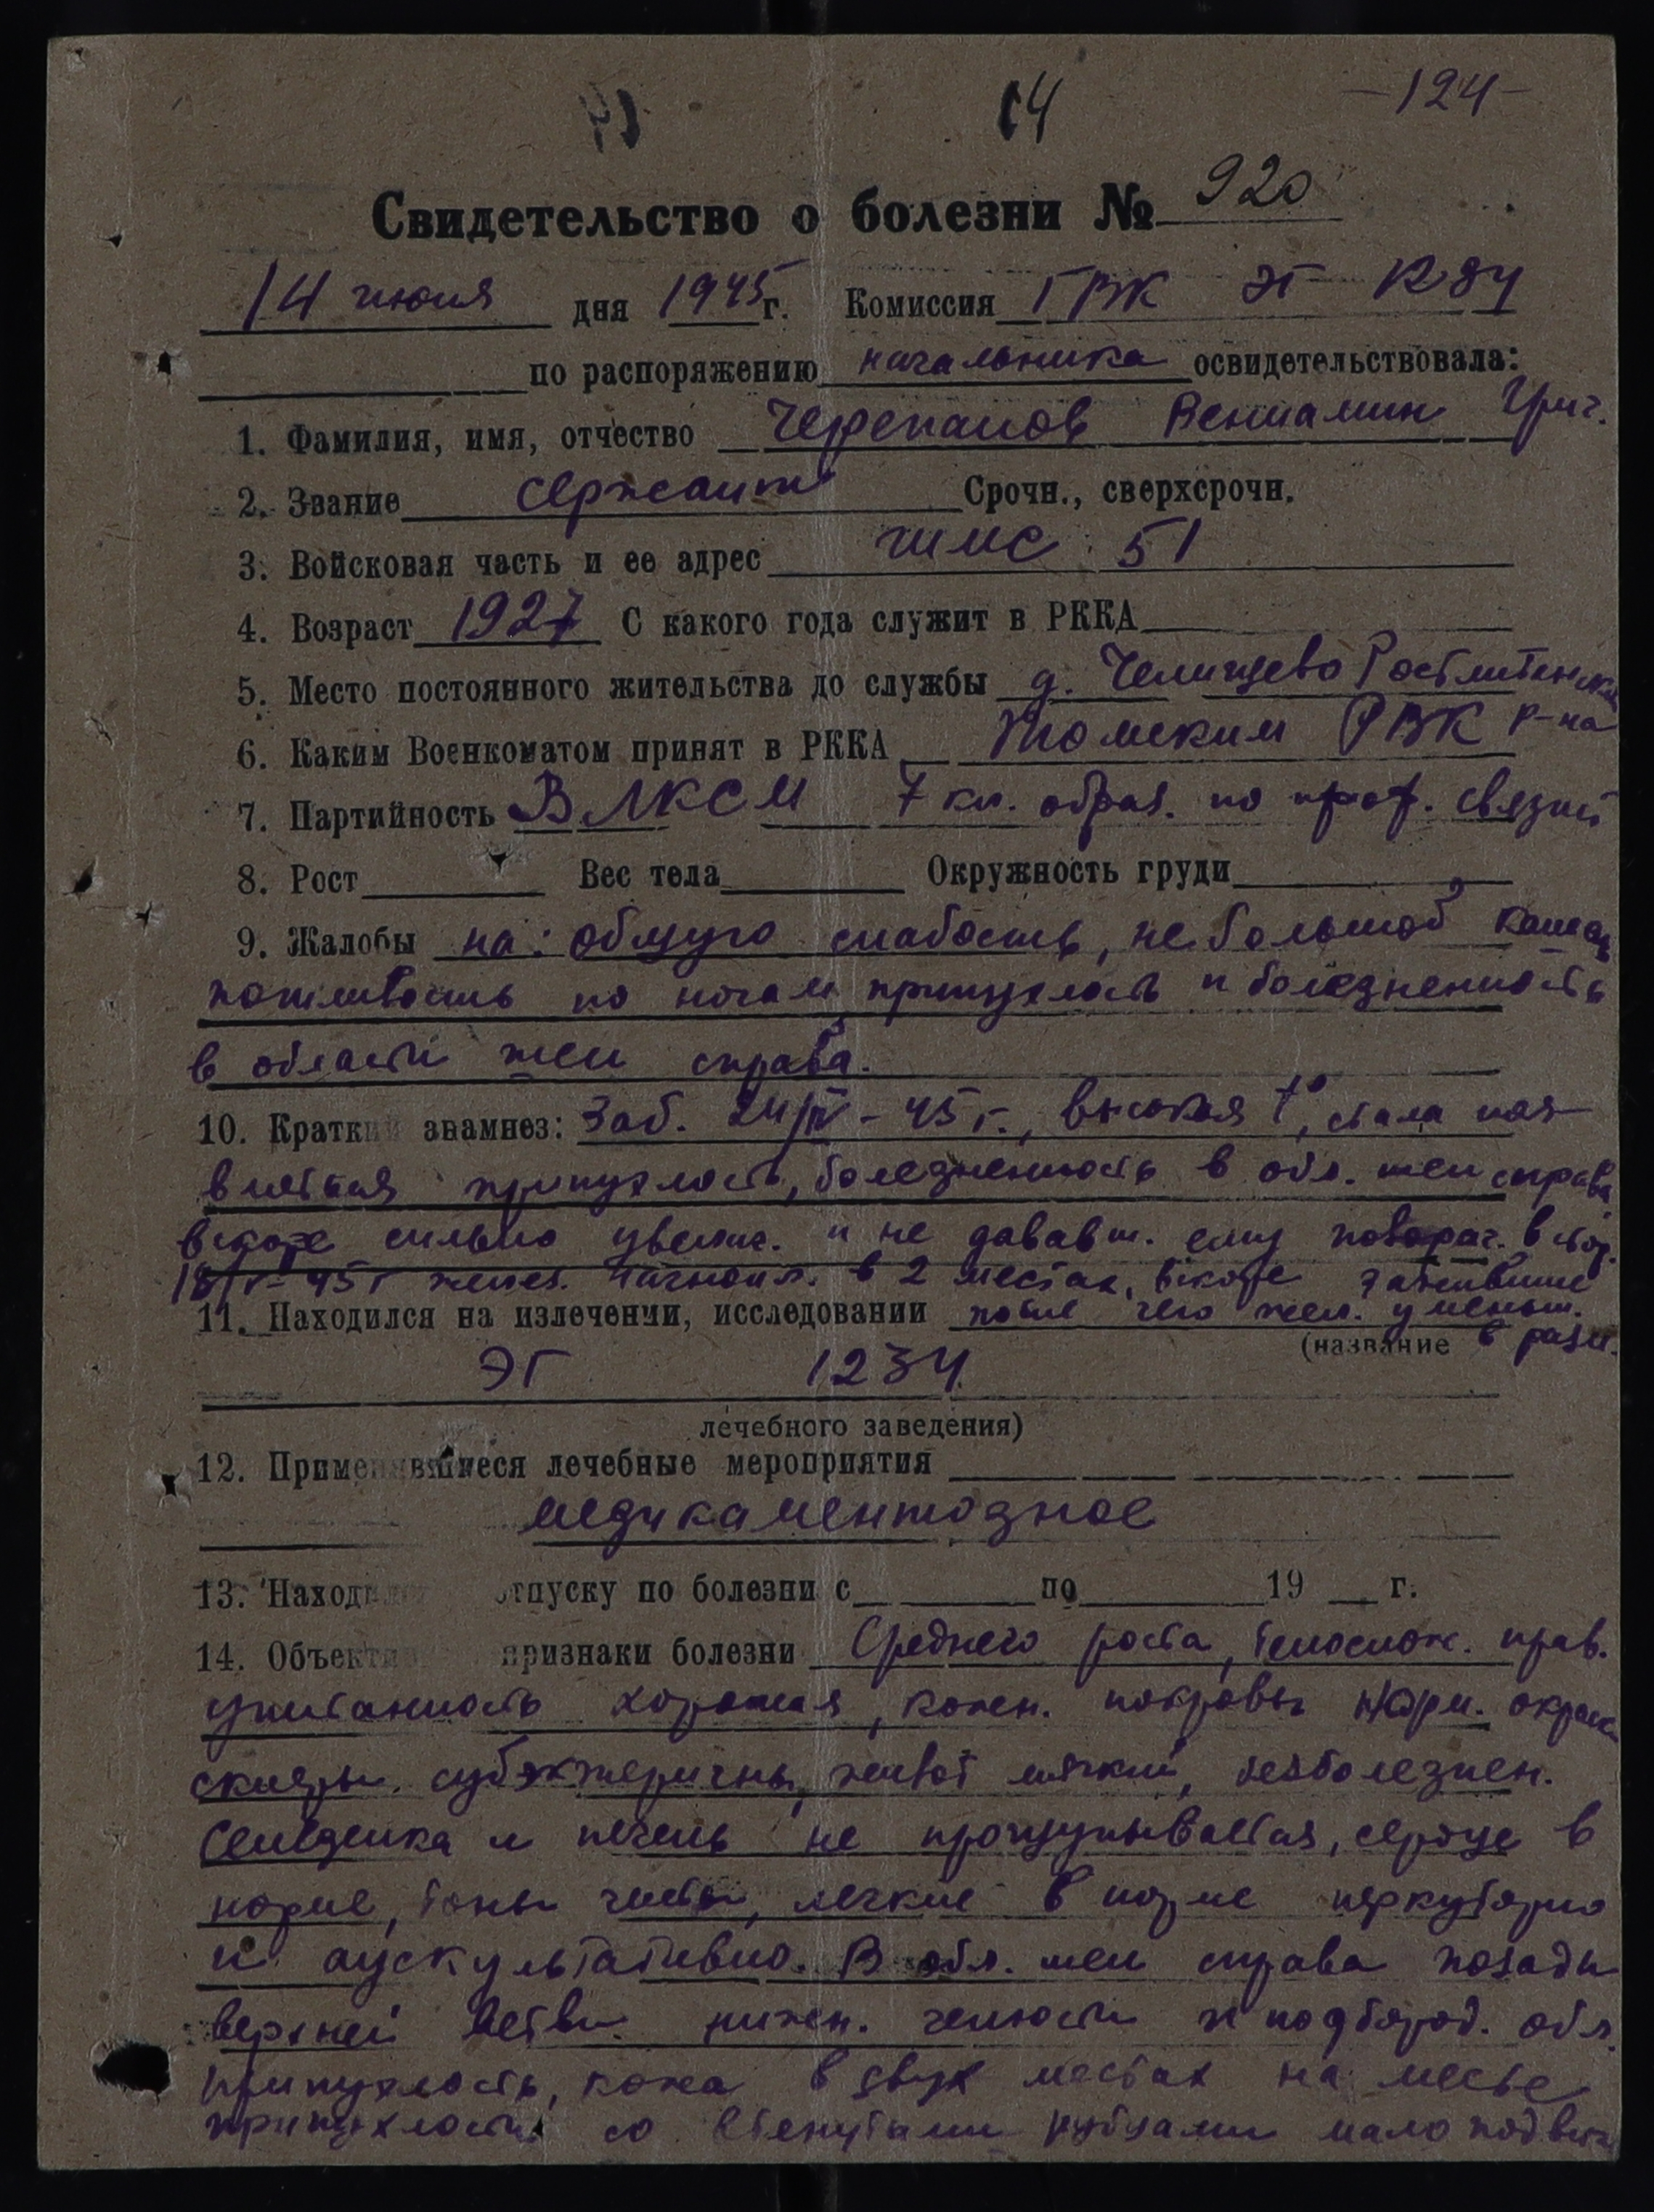 14 -124-
Свидетельство о болезни № 920
14 июня дня 1945 г. Комиссия ГВК ЭГ
по распоряжению начальника освидетельствовала:
1. Фамилия, имя, отчество Черепанов Вениамин Григ.
2. Звание сержант Срочн., сверхсрочн.
3. Войсковая часть и ее адрес ШМС 51
4. Возраст 1927 С какого года служит в РККА
5. Место постоянного жительства до службы д. Челищево
6. Каким Военкоматом принят в РККА РВК р-на
7. Партийность ВЛКСМ 7 кл. образ. по проф. связист
8. Рост Вес тела Окружность груди
9. Жалобы на: общую слабость, небольшой кашель
потливость по ночам припухлость и болезненность
в области шеи справа.
10. Краткий анамнез: Заб. 24/IV-45 г., высокая t°, стала поя-
вляться припухлость, болезненность в обл. шеи справа
вскоре сильно увелич. и не дававш. ему поворач. в стор.
18/V-45 г желез. нагноил. в 2 местах, вскоре зажившие
11. Находился на излечении, исследовании после чего жел. уменьш.
(название в разм.
ЭГ 1234
лечебного заведения)
12. Применявшиеся лечебные мероприятия
медикаментозное
13. Находился отпуску по болезни с по 19 г.
14. Объектив признаки болезни Среднего роста, телослож. прав.
упитанность хорошая, кожн. покровы норм. окраск
склеры субэктеричны, живот мягкий, безболезнен.
Селезенка и печень не прощупываются, сердце в
норме, тоны чисты, легкие в норме перкуторно
и аускультативно. В обл. шеи справа позади
верхней ветви нижн. челюсти и подбород. обл.
припухлость, кожа в двух местах на месте
припухлости со втянутыми рубцами мало подвиж